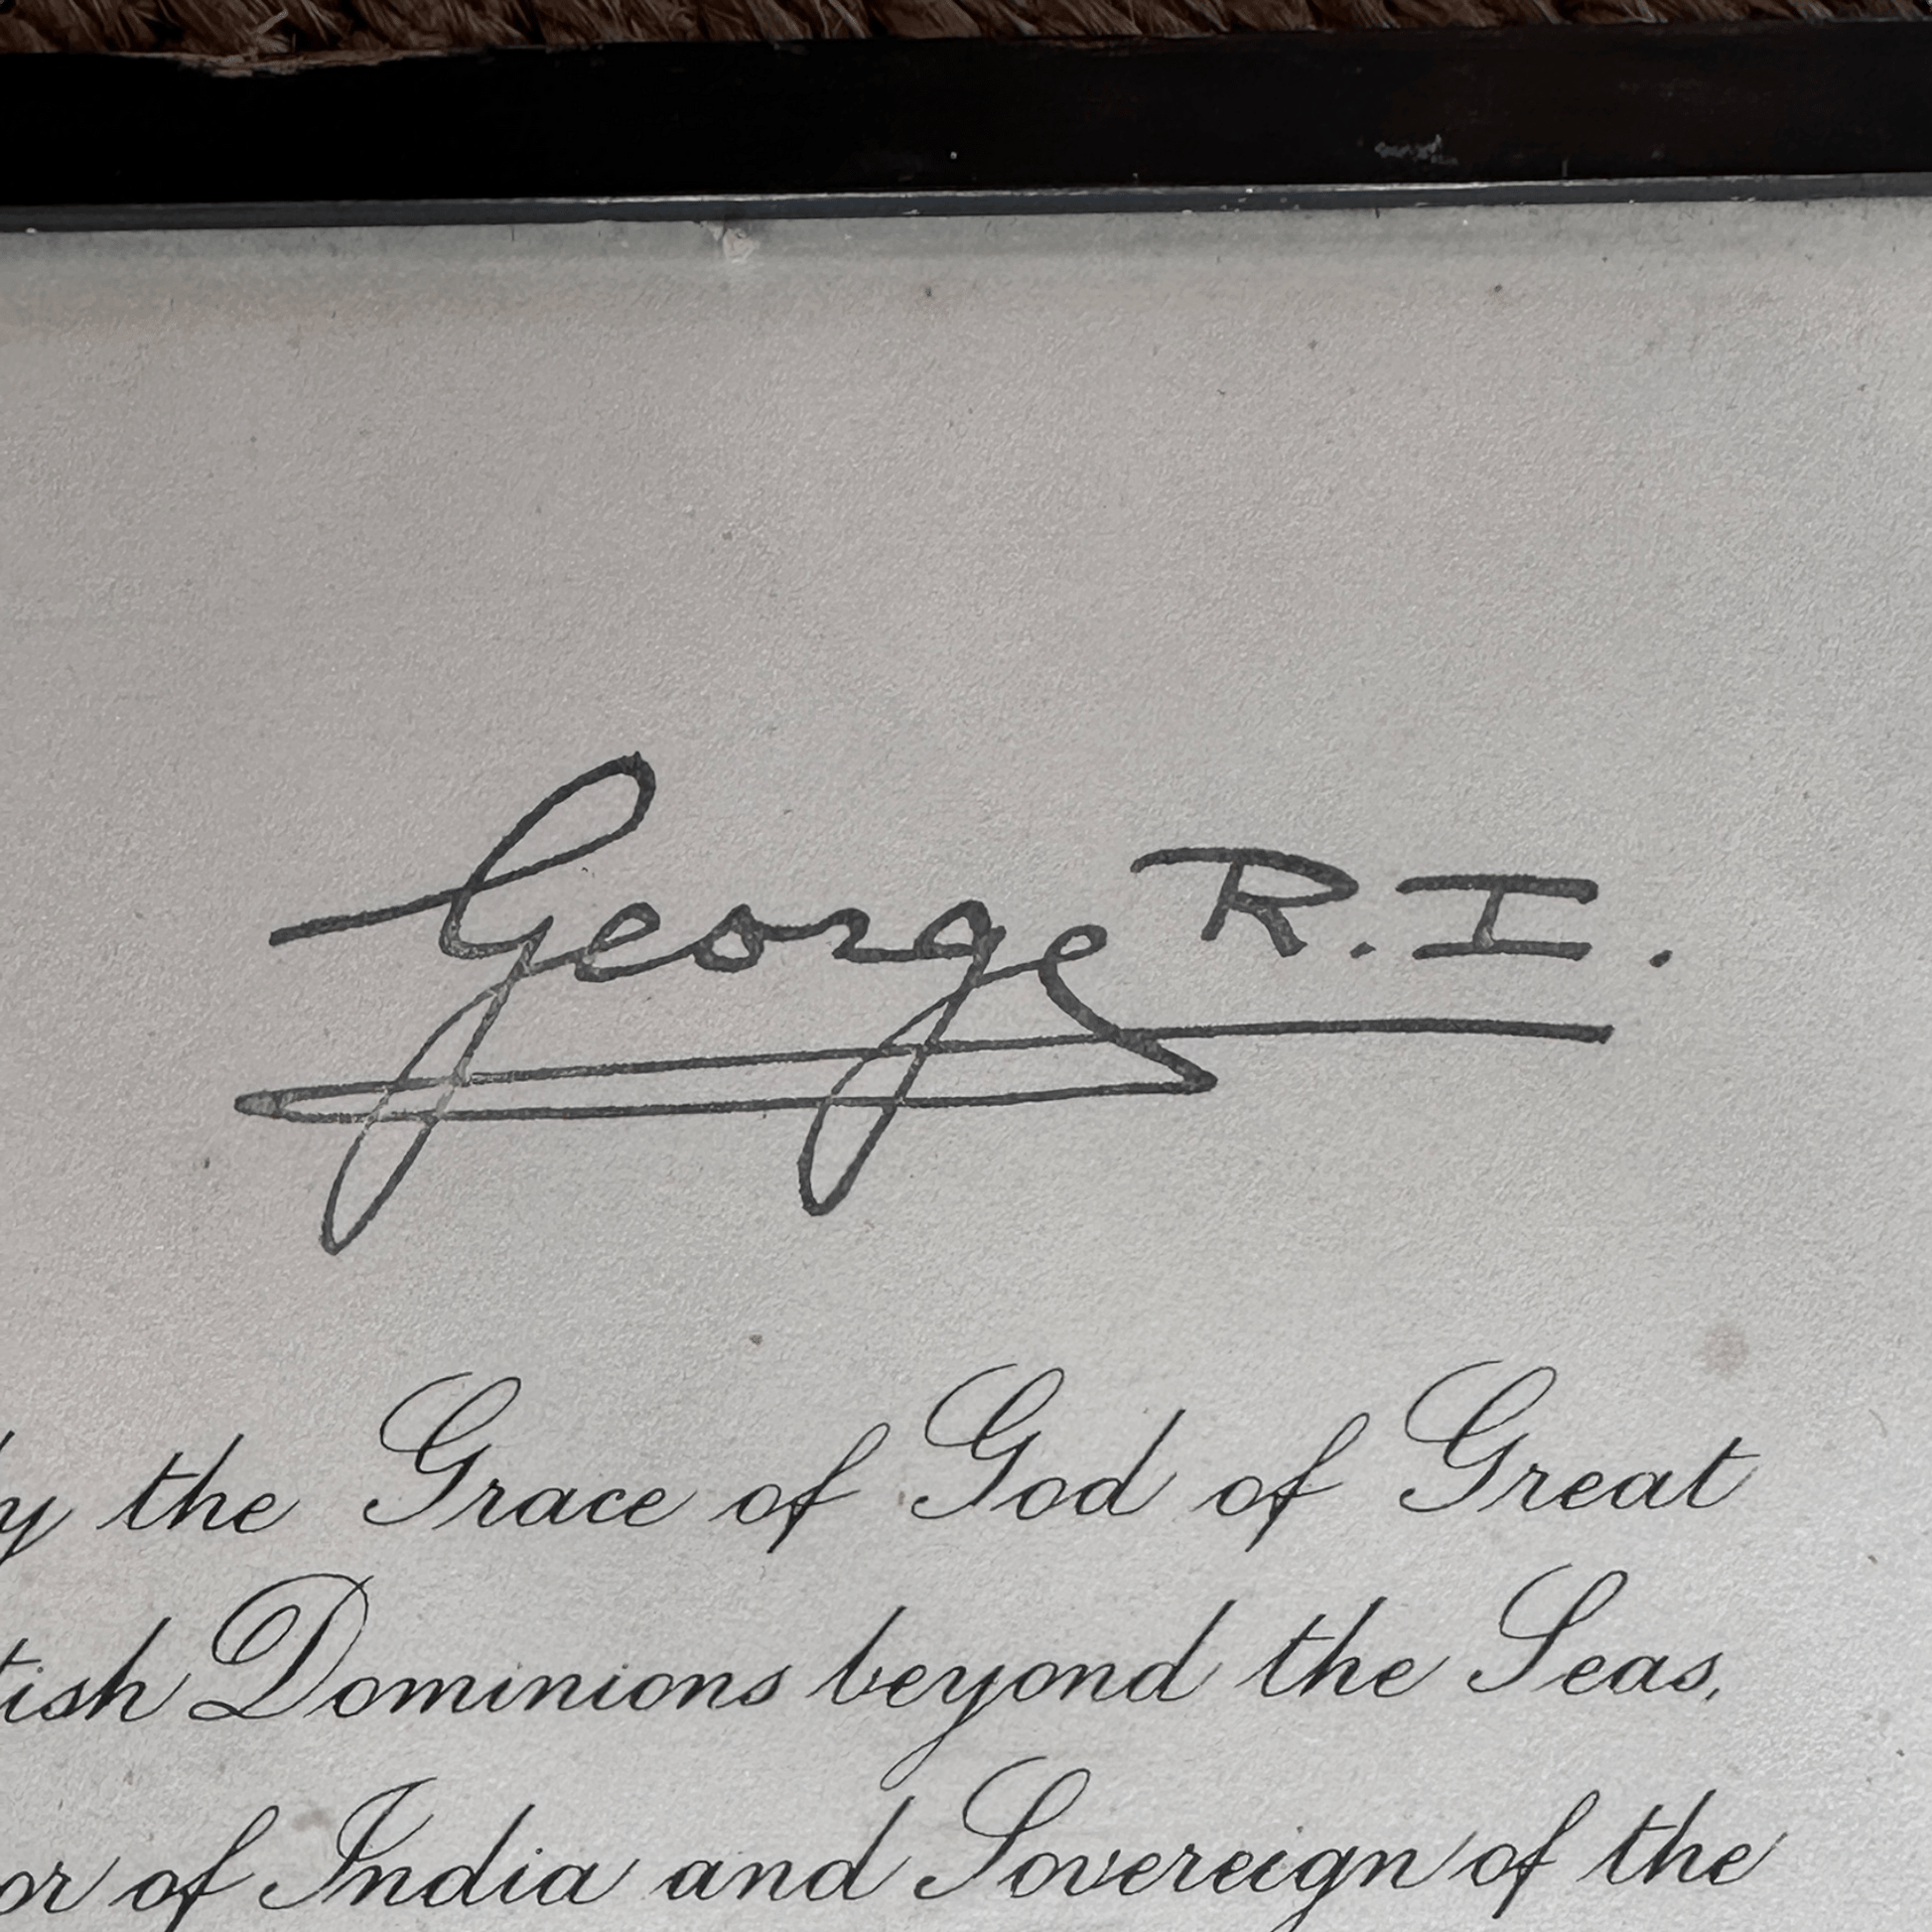 George R.I.
the Grace of God of Great
Dominions beyond the Seas,
of India and Sovereign of the